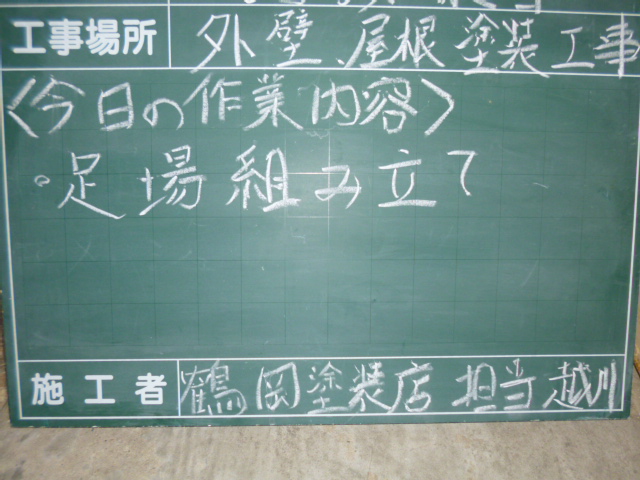 工事場所 外壁、屋根塗装工事
〈今日の作業内容〉
・足場組み立て
施工者 鶴岡塗装店 担当越川